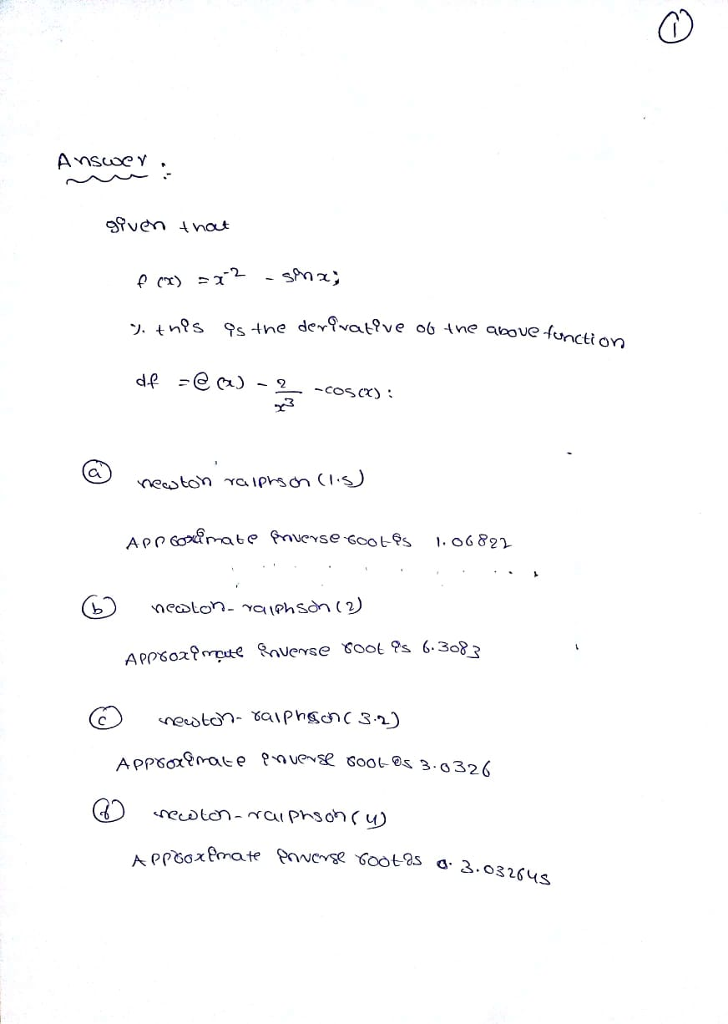 ①
Answer :-
given that
f(x) = x^-2 - sinx;
% this is the derivative of the above function
df = @(x) - 2/x^3 - cos(x):
ⓐ newton ralphson (1.5)
Approximate inverse root is 1.06822
ⓑ newton-ralphson (2)
Approximate inverse root is 6.3083
ⓒ newton-ralphson (3.2)
Approximate inverse root is 3.0326
ⓓ newton-ralphson (4)
Approximate inverse root is 3.032645